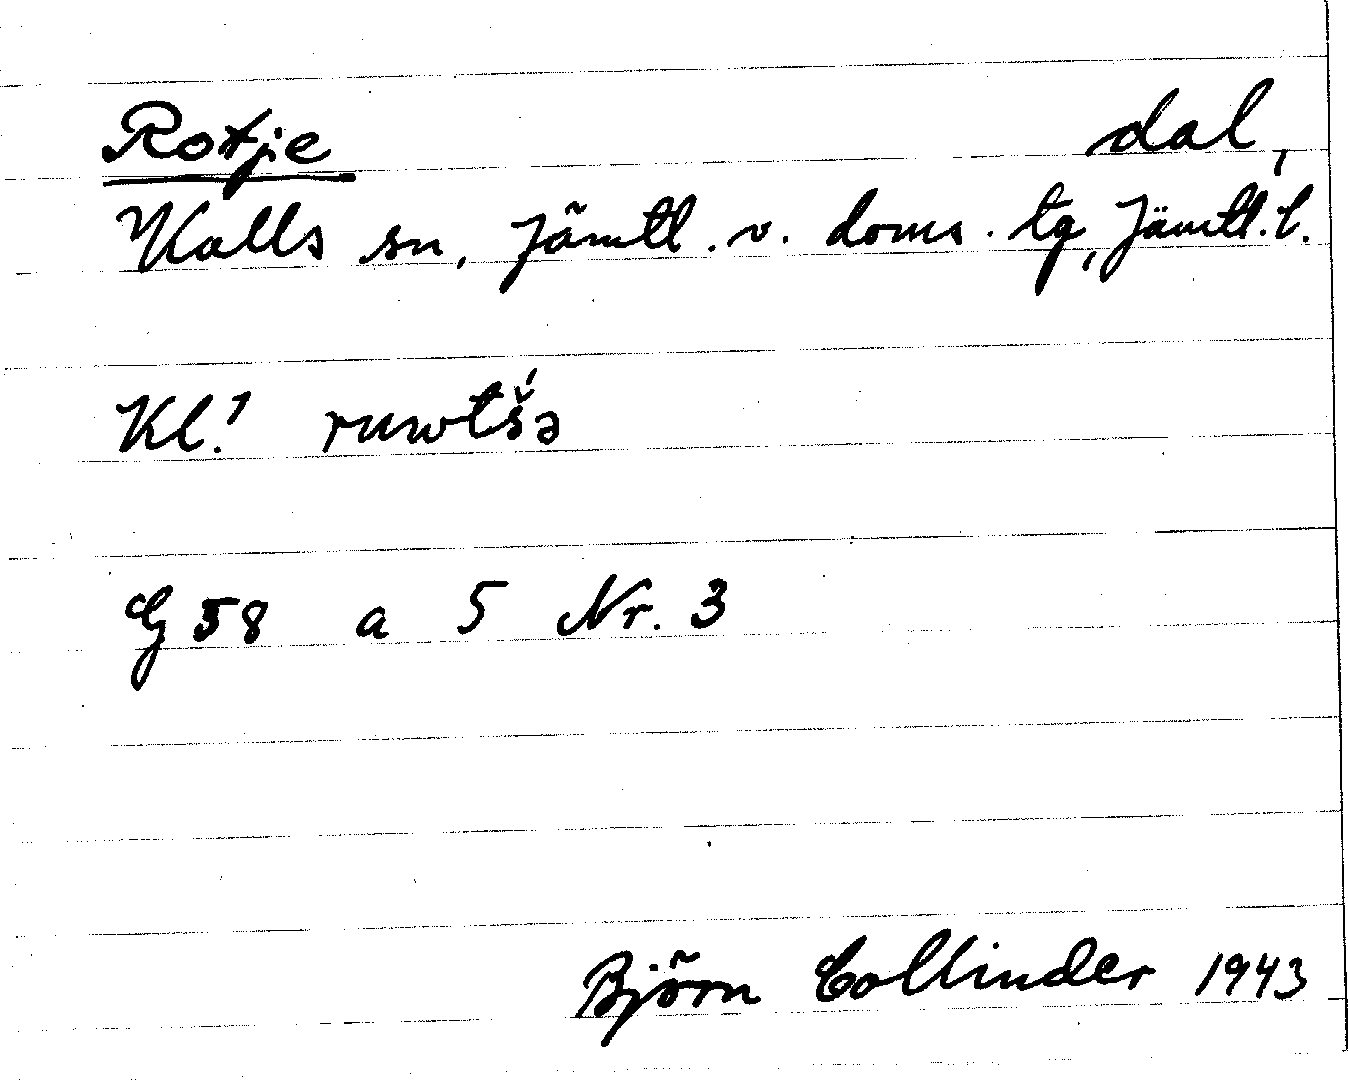 Rotje dal,
Kalls sn, Jämtl. v. doms. tg, Jämtl. l.
Kl! ruwtš́ə
G 58 a 5 Nr. 3
Björn Collinder 1943